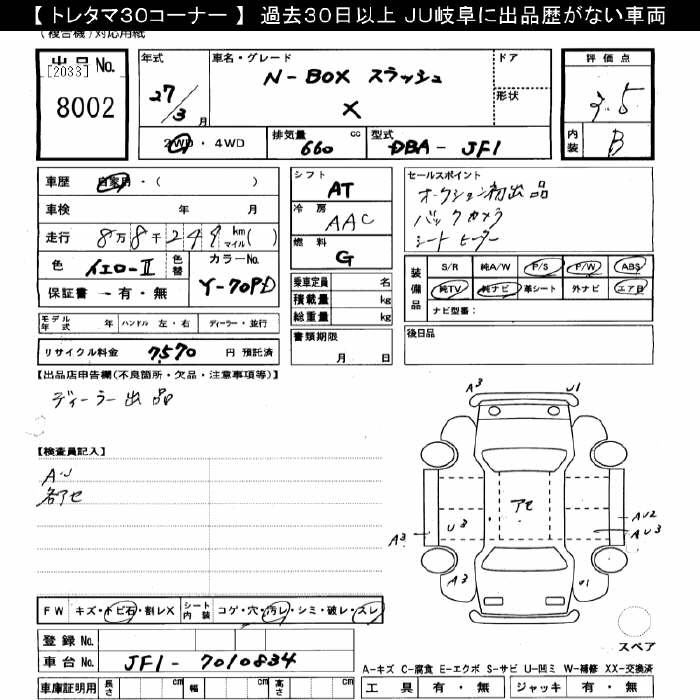 【 トレタマ30コーナー 】 過去30日以上 JU岐阜に出品歴がない車両
(複合機)対応用紙
出品No.
[2033]
8002
年式
27/3 月
車名・グレード
N-BOX スラッシュ
X
ドア
形状
評価点
3.5
内装
B
2WD ・ 4WD
排気量
660 cc
型式
DBA - JF1
車歴
自家用・( )
車検 年 月
走行 8万8千249 km マイル( )
色
イエロー-II
色替
カラーNo.
Y-70PD
保証書 ー 有・無
シフト
AT
冷房
AAC
燃料
G
乗車定員 名
積載量 kg
総重量 kg
セールスポイント
オークション初出品
バックカメラ
シートヒーター
装備品
S/R 純A/W P/S P/W ABS
純TV 純ナビ 革シート 外ナビ エアB
ナビ型番:
モデル年式 年 ハンドル 左・右 ディーラー・並行
リサイクル料金 7,570 円 預託済
書類期限
月 日
後日品
【出品店申告欄(不良箇所・欠品・注意事項等)】
ディーラー出品
【検査員記入】
AU
各アセ
A3 U1
アセ
U3
A3
AU2
AU3
A3
U1
スペア
FW キズ・トビ石・割レX
シート内装 コゲ・穴・汚レ・シミ・破レ・スレ
登録No.
車台No. JF1-7010834
車庫証明用 長さ cm 幅 cm 高さ cm
A-キズ C-腐食 E-エクボ S-サビ U-凹ミ W-補修 XX-交換済
工具 有・無 ジャッキ 有・無